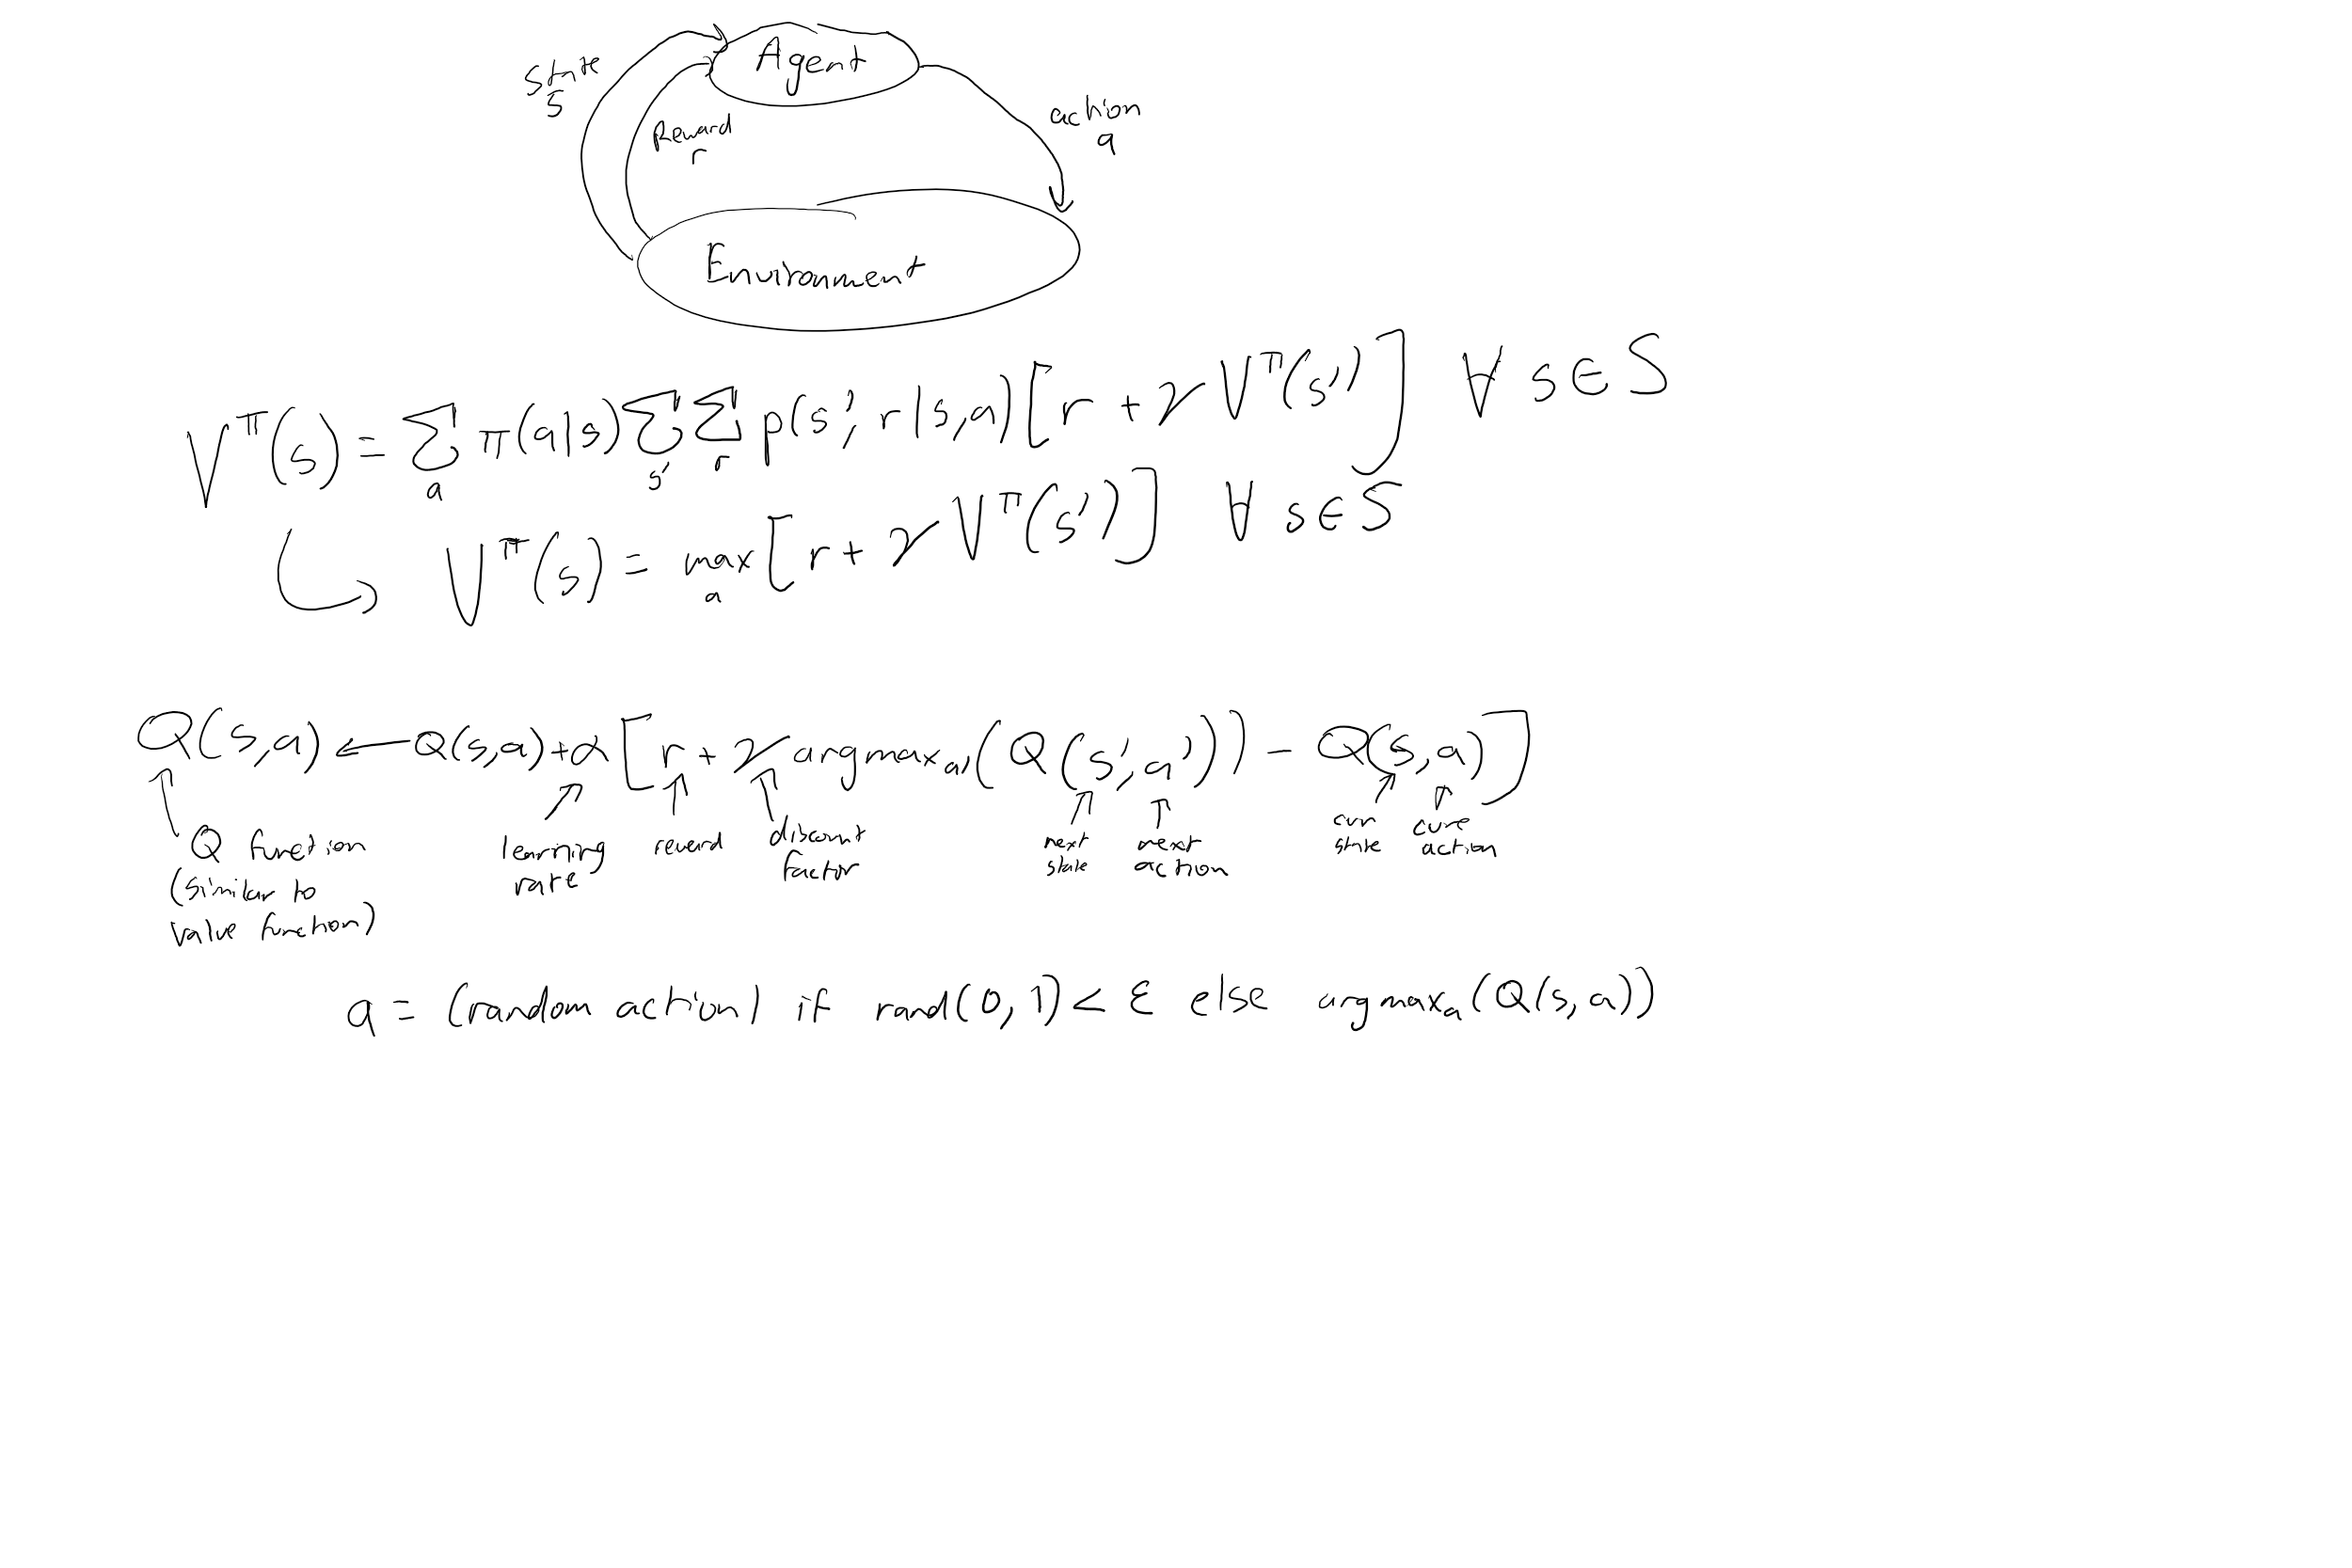 Agent
State
s
Reward
r
action
a
Environment
V^π(s) = Σ_a π(a|s) Σ_s' Σ_r p(s', r|s,a) [r + γ V^π(s')] ∀ s∈S
V^π(s) = max_a [r + γ V^π(s')] ∀ s∈S
Q(s,a) ← Q(s,a) + α [r + γ argmax_a'(Q(s',a')) - Q(s,a)]
Q function
(similar to
value function)
learning
rate
reward
discount
factor
next
state
next
action
curr
state
action
a = (random action) if rand(0,1) < ε else argmax_a(Q(s,a))